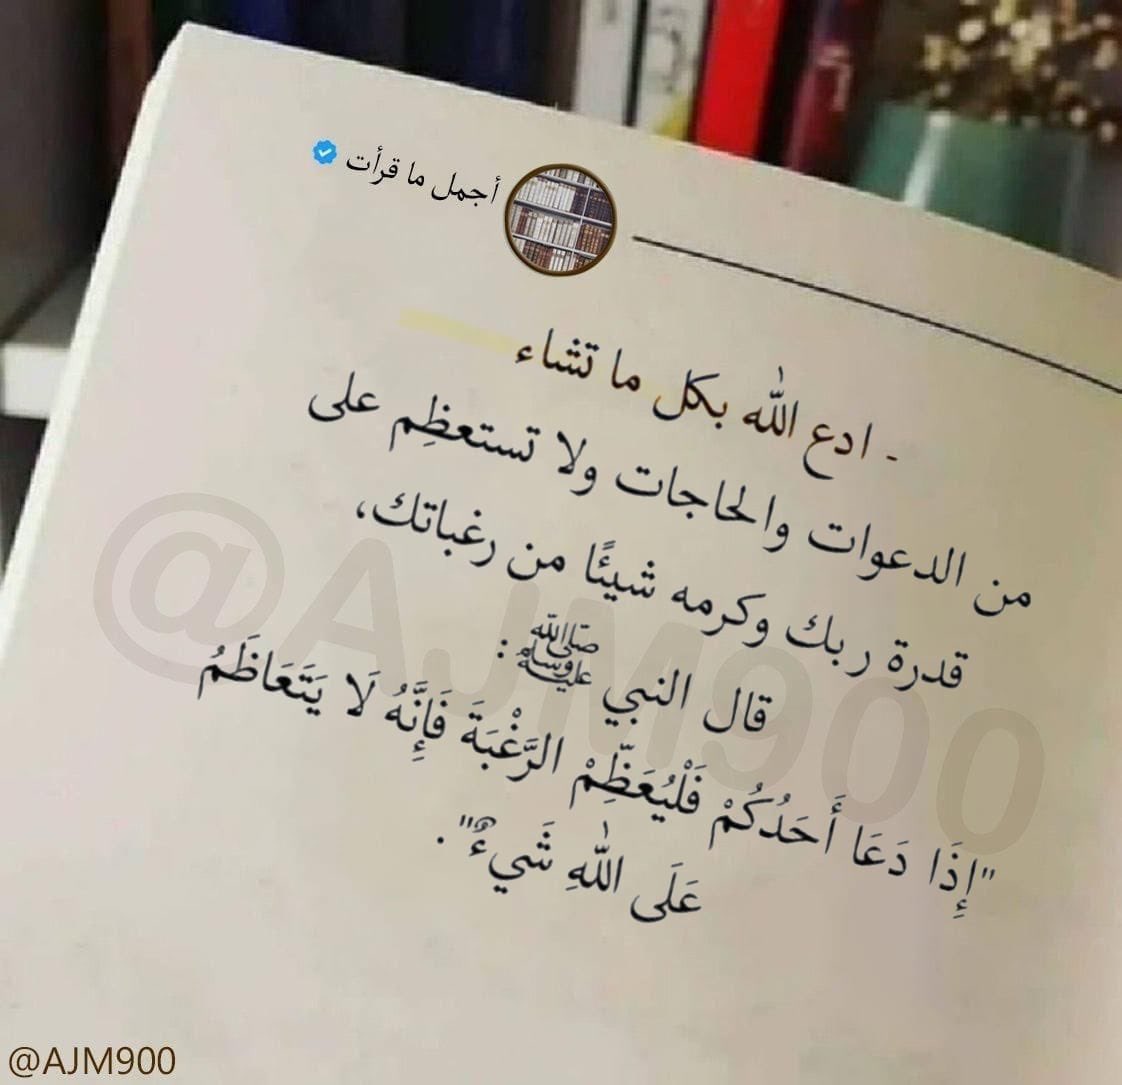 أجمل ما قرأت
- ادع الله بكل ما تشاء
من الدعوات والحاجات ولا تستعظِم على
قدرة ربك وكرمه شيئًا من رغباتك،
قال النبي ﷺ :
"إِذَا دَعَا أَحَدُكُمْ فَلْيُعَظِّمْ الرَّغْبَةَ فَإِنَّهُ لَا يَتَعَاظَمُ
عَلَى اللهِ شَيءٌ".
@AJM900
@AJM900